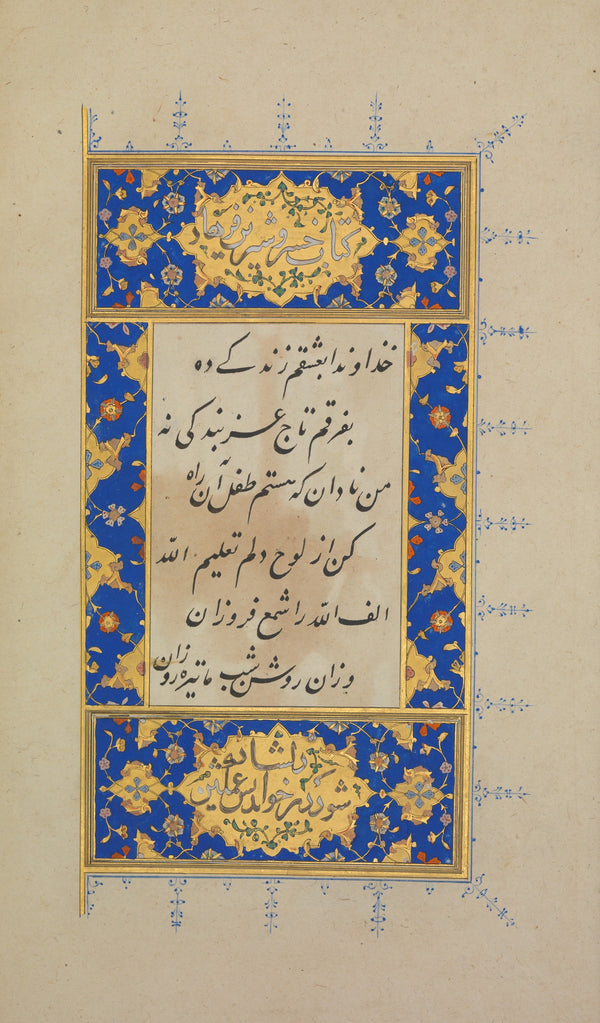 کتاب خسرو شیرین فرهاد
خداوندا بعشقم زندگی ده
بفرقم تاج عز بندگی نه
من نادان که هستم طفل آن راه
کن از لوح دلم تعلیم الله
الف الله را شمع فروزان
وزان روشن شب ما تیره روزان
دلشاد
شود گر خواندش غمگین